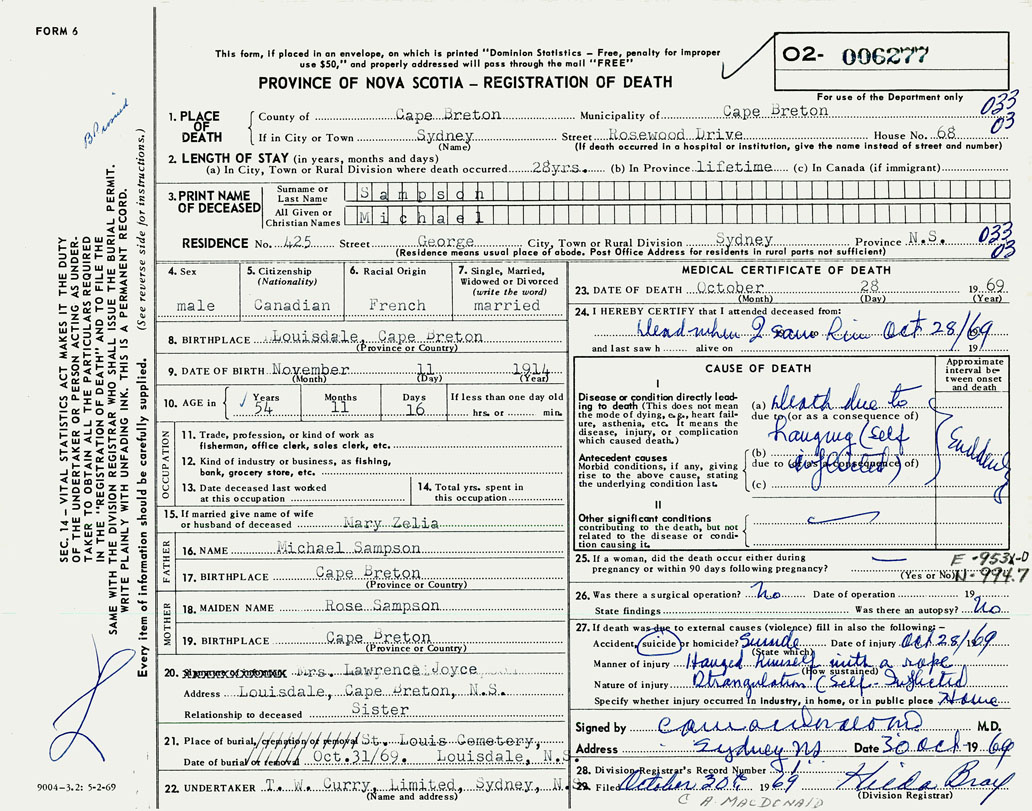 FORM 6
This form, if placed in an envelope, on which is printed "Dominion Statistics – Free, penalty for improper
use $50," and properly addressed will pass through the mail "FREE"
PROVINCE OF NOVA SCOTIA – REGISTRATION OF DEATH
02- 006277
For use of the Department only
033
03
1. PLACE OF DEATH
County of Cape Breton Municipality of Cape Breton
If in City or Town Sydney Street Rosewood Drive House No. 68
(Name) (If death occurred in a hospital or institution, give the name instead of street and number)
2. LENGTH OF STAY (in years, months and days)
(a) In City, Town or Rural Division where death occurred 28yrs. (b) In Province lifetime (c) In Canada (if immigrant)
3. PRINT NAME OF DECEASED
Surname or Last Name Sampson
All Given or Christian Names Michael
RESIDENCE No. 425 Street George City, Town or Rural Division Sydney Province N.S.
033
03
(Residence means usual place of abode. Post Office Address for residents in rural parts not sufficient)
4. Sex
male
5. Citizenship
(Nationality)
Canadian
6. Racial Origin
French
7. Single, Married,
Widowed or Divorced
(write the word)
married
8. BIRTHPLACE Louisdale, Cape Breton
(Province or Country)
9. DATE OF BIRTH November 11 1914
(Month) (Day) (Year)
10. AGE in Years 54 Months 11 Days 16 If less than one day old
hrs. or min.
OCCUPATION
11. Trade, profession, or kind of work as
fishermon, office clerk, sales clerk, etc.
12. Kind of industry or business, as fishing,
bank, grocery store, etc.
13. Date deceased last worked
at this occupation
14. Total yrs. spent in
this occupation
15. If married give name of wife
or husband of deceased Mary Zelia
FATHER
16. NAME Michael Sampson
17. BIRTHPLACE Cape Breton
(Province or Country)
MOTHER
18. MAIDEN NAME Rose Sampson
19. BIRTHPLACE Cape Breton
(Province or Country)
20. Mrs. Lawrence Joyce
Address Louisdale, Cape Breton, N.S.
Relationship to deceased Sister
21. Place of burial, cremation or removal St. Louis Cemetery,
Date of burial or removal Oct.31/69. Louisdale, N.S.
22. UNDERTAKER T. W. Curry, Limited, Sydney, N.S.
(Name and address)
MEDICAL CERTIFICATE OF DEATH
23. DATE OF DEATH October 28 1969
(Month) (Day) (Year)
24. I HEREBY CERTIFY that I attended deceased from:
Dead when I saw him Oct 28/69
and last saw h alive on 19
CAUSE OF DEATH
Approximate interval between onset and death
I
Disease or condition directly leading
to death (This does not mean
the mode of dying, e.g., heart failure,
asthenia, etc. It means the
disease, injury, or complication
which caused death.)
(a) Death due to
due to (or as a consequence of)
hanging (self
Antecedent causes
Morbid conditions, if any, giving
rise to the above cause, stating
the underlying condition last.
(b) inflicted)
due to (or as a consequence of)
(c)
Suddenly
II
Other significant conditions
contributing to the death, but not
related to the disease or condition
causing it.
25. If a woman, did the death occur either during
pregnancy or within 90 days following pregnancy?
(Yes or No)
N-994.7
26. Was there a surgical operation? No Date of operation 19
State findings Was there an autopsy? No
27. If death was due to external causes (violence) fill in also the following:–
Accident, suicide or homicide? Suicide Date of injury Oct 28/1969
(State which)
Manner of injury Hanged himself with a rope
(How sustained)
Nature of injury Strangulation (Self-Inflicted
Specify whether injury occurred in industry, in home, or in public place Home
Signed by M.D.
Address Sydney NS Date 30 Oct 1969
28. Division Registrar's Record Number
29. Filed October 30th 1969 Hilda Bray
(Division Registrar)
C A MACDONALD
SEC. 14 – VITAL STATISTICS ACT MAKES IT THE DUTY
OF THE UNDERTAKER OR PERSON ACTING AS UNDER-
TAKER TO OBTAIN ALL THE PARTICULARS REQUIRED
IN THE "REGISTRATION OF DEATH" AND TO FILE THE
SAME WITH THE DIVISION REGISTRAR WHO SHALL ISSUE THE BURIAL PERMIT.
WRITE PLAINLY WITH UNFADING INK. THIS IS A PERMANENT RECORD.
Every item of information should be carefully supplied. (See reverse side for instructions.)
9004–3.2: 5-2-69